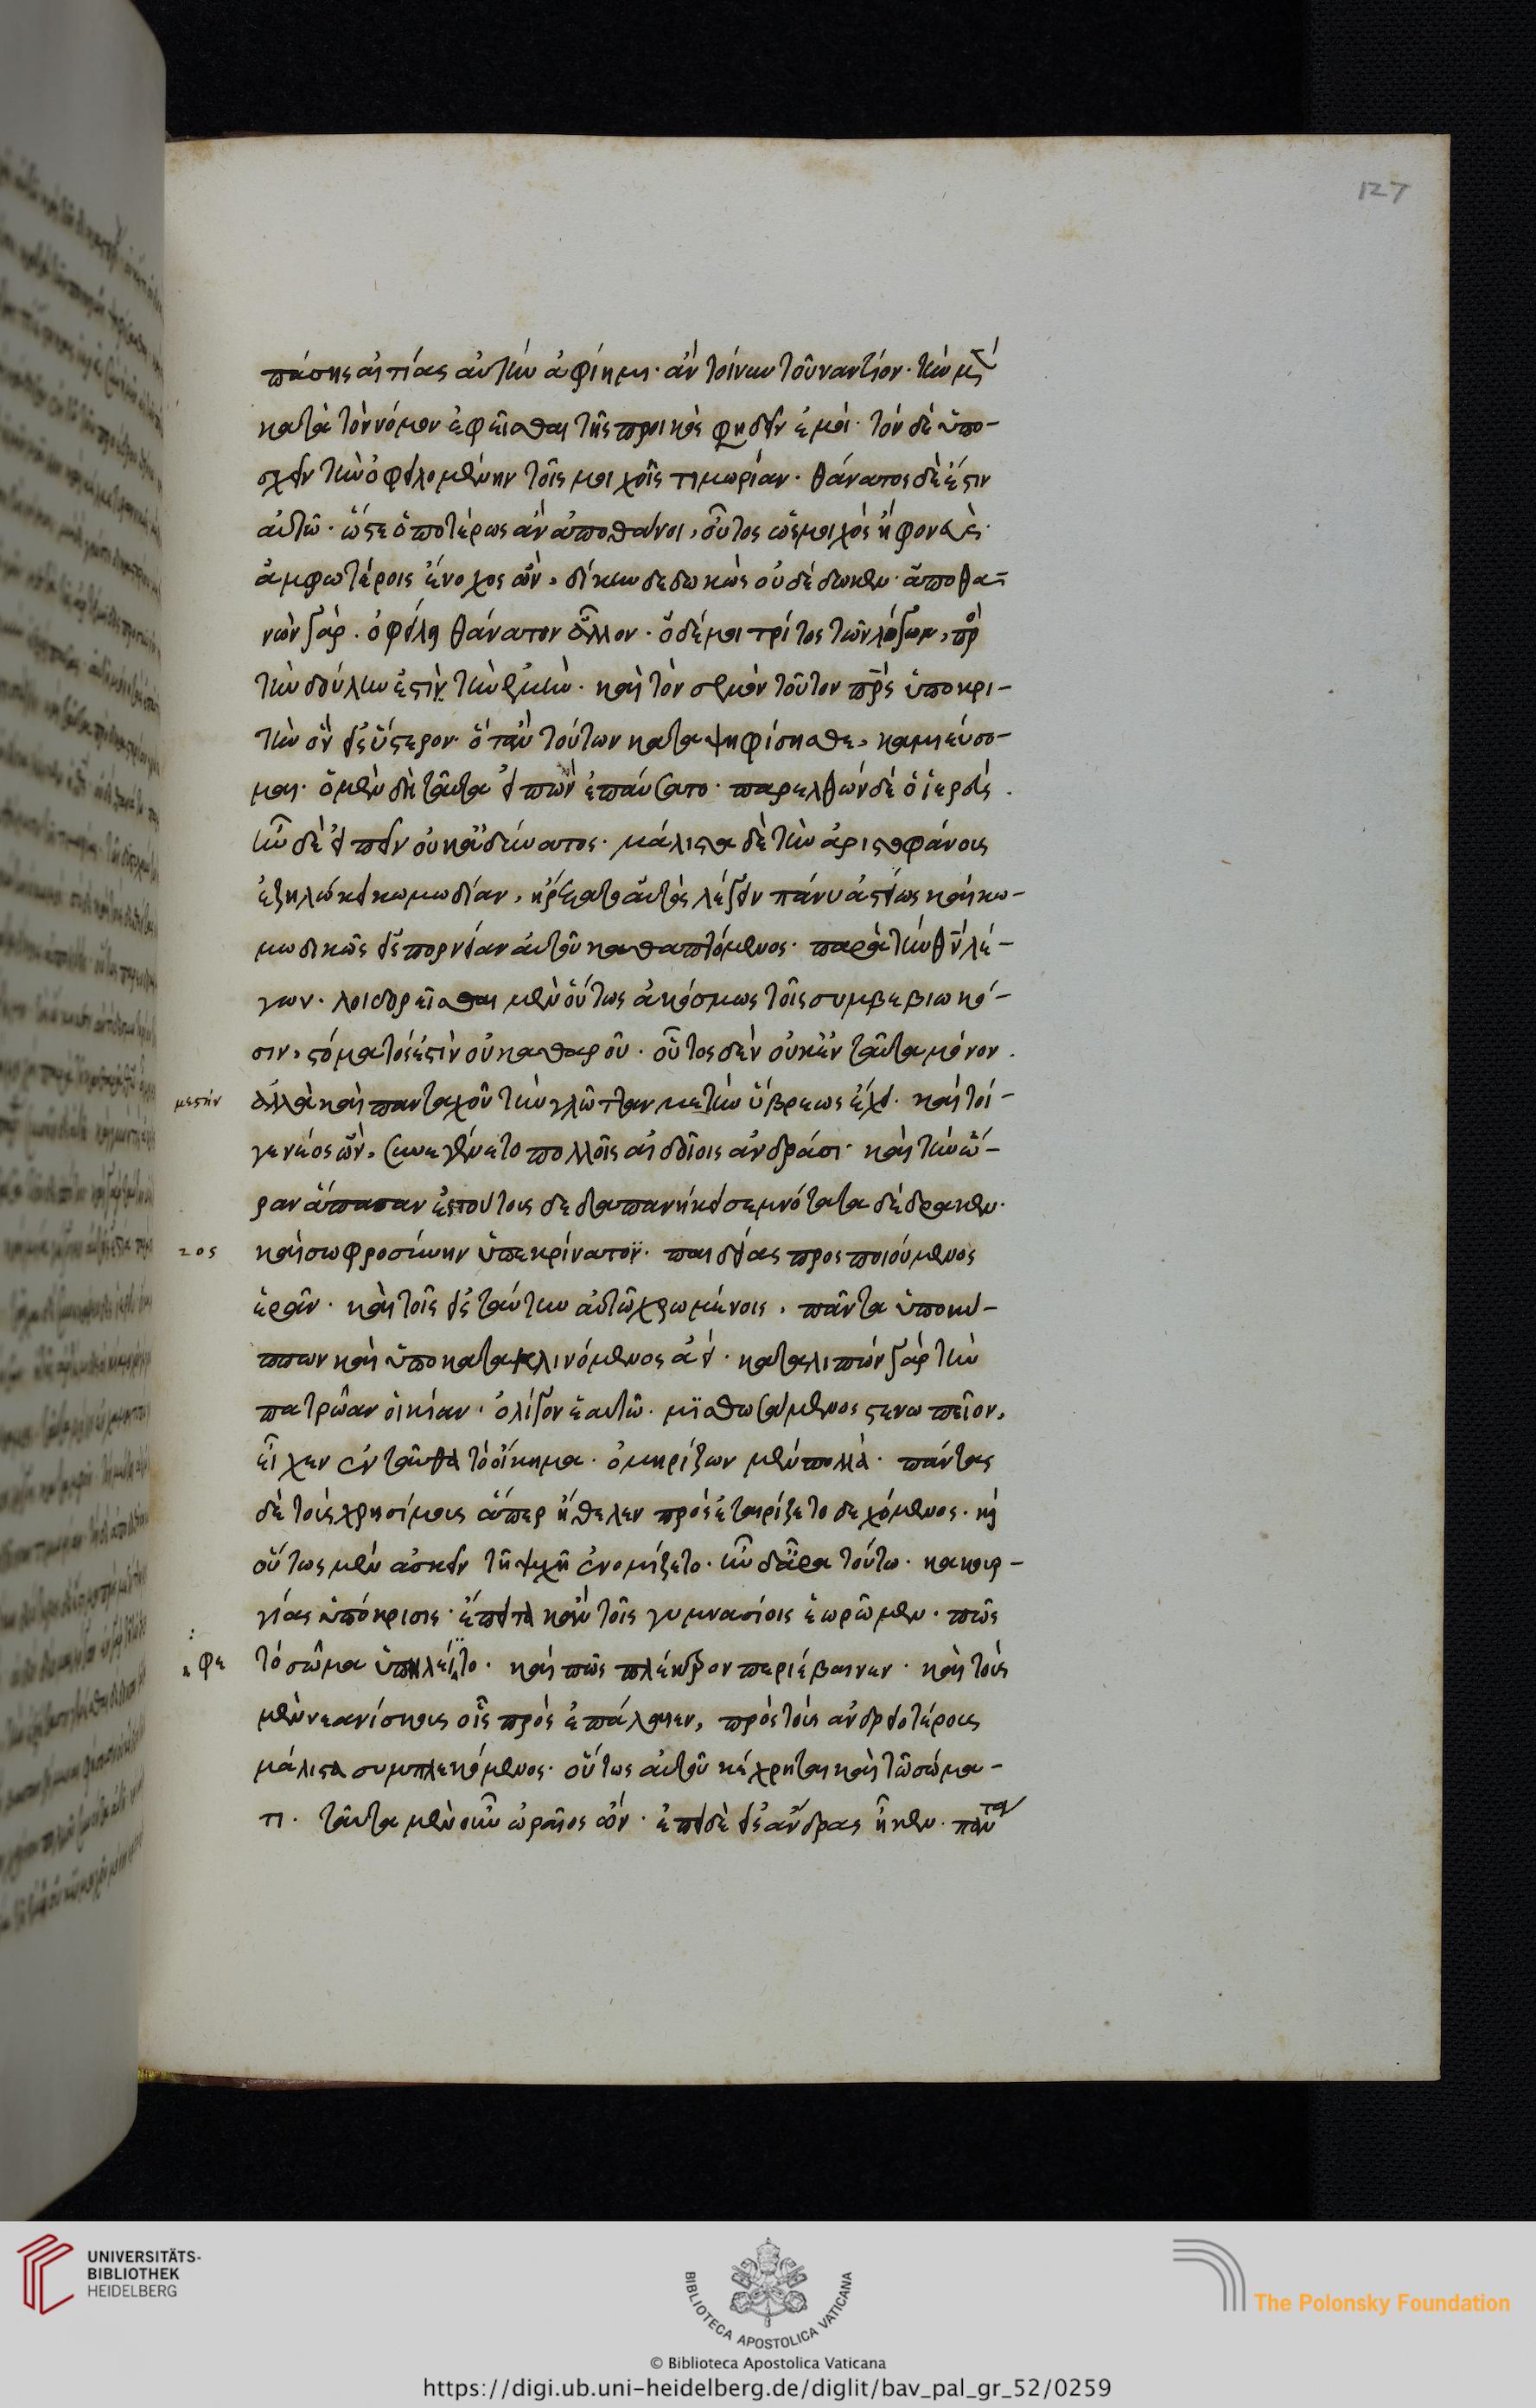 127
πάσης αἰτίας αὐτὴν ἀφίημι· ἂν τοίνυν τοὐναντίον· τὴν μὲν
κατὰ τὸν νόμον ἐφεῖσθαι τῆς προικὸς φησὶν ἐμοὶ· τὸν δὲ ὑπο-
σχεῖν τὴν ὀφειλομένην τοῖς μοιχοῖς τιμωρίαν· θάνατος δὲ ἐστιν
αὐτῶ· ὥστε ὁποτέρως ἂν ἀποθάνοι, οὗτος ὡς μοιχὸς ἢ φονεὺς·
ἀμφωτέροις ἔνοχος ὢν, δίκην δεδωκὼς οὐ δέδωκεν· ἀποθα-
νὼν γὰρ· ὀφείλει θάνατον ἄλλον· ὁ δέ μοι τρίτος τῶν λόγων, πρὸς
τὴν δούλην ἐστὶν τὴν ἐμὴν· καὶ τὸν σεμνὸν τοῦτον πρὸς ὑποκρι-
τὴν ὃν εἰς ὕστερον· ὅταν τούτων καταψηφίσησθε, ταμιεύσο-
μαι· ὁ μὲν δὴ ταῦτα εἰπὼν ἐπαύσατο· παρελθὼν δὲ ὁ ἱερεὺς·
ἦν δὲ εἰπεῖν οὐκ ἀδύνατος· μάλιστα δὲ τὴν ἀριστοφάνους
ἐζηλώκει κωμωδίαν, ἤρξατο αὐτὸς λέγειν πάνυ ἀστείως καὶ κω-
μωδικῶς εἰς πορνείαν αὐτοῦ καθαπτόμενος· παρὰ τὴν θεὸν λέ-
γων· λοιδορεῖσθαι μὲν οὕτως ἀκόσμως τοῖς συμβεβιωκό-
σιν, στόματός ἐστὶν οὐ καθαροῦ· οὗτος δὲ οὐκ ἐν ταῦτα μόνον·
μεστὴν
ἀλλὰ καὶ πανταχοῦ τὴν γλῶτταν με τὴν ὕβρεως ἔχει· καίτοι-
γε νέος ὢν, συνεγένετο πολλοῖς αἰδοίοις ἀνδράσι· καὶ τὴν ὥ-
ραν ἅπασαν εἰς τούτους δεδαπανήκει σεμνότατα δέδρακεν·
τος
καὶ σωφροσύνην ὑπεκρίνατο· παιδείας προσποιούμενος
ἐρᾶν· καὶ τοῖς εἰς ταύτην αὐτῶ χρωμένοις, πάντα ὑποκύ-
πτων καὶ ὑποκατακλινόμενος ἀεὶ· καταλιπὼν γὰρ τὴν
πατρώαν οἰκίαν· ὀλίγον ἑαυτῶ· μισθωσάμενος στενωπεῖον,
εἶχεν ἐνταῦθα τὸ οἴκημα· ὁμηρίζων μὲν πολλὰ· πάντας
δὲ τοὺς χρησίμους ἅπερ ἤθελεν προσεταιρίζετο δεχόμενος· καὶ
οὕτως μὲν ἀσκεῖν τῆ ψυχῆ ἐνομίζετο· ἦν δ' ἄρα τοῦτο· κακουρ-
γίας ὑπόκρισις· ἔπειτα κἀν τοῖς γυμνασίοις ἑωρῶμεν· πῶς
ει φε
τὸ σῶμα ὑπηλείτο· καὶ πῶς πλέκθρον περιέβαινεν· καὶ τοὺς
μὲν νεανίσκους οἷς προσεπάλαιεν, πρὸς τοὺς ἀνδρειοτέρους
μάλιστα συμπλεκόμενος· οὕτως αὐτοῦ κέχρηται καὶ τῶ σώμα-
τι· ταῦτα μὲν οὖν ὡραῖος ὢν· ἐπεὶ δὲ εἰς ἄνδρας ἧκεν· πάντα
UNIVERSITÄTS-
BIBLIOTHEK
HEIDELBERG
BIBLIOTECA APOSTOLICA VATICANA
The Polonsky Foundation
© Biblioteca Apostolica Vaticana
https://digi.ub.uni-heidelberg.de/diglit/bav_pal_gr_52/0259